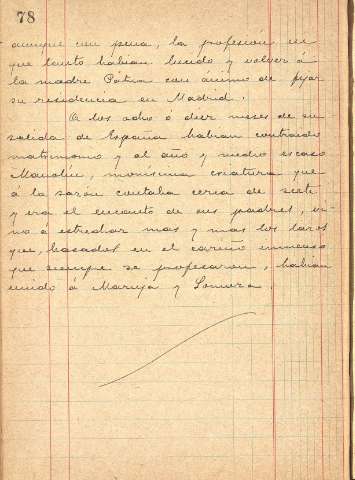 78
aunque con pena, la profesion en
que tanto habian lucido y volver á
la madre Pátria con ánimo de fijar
su residencia en Madrid.
A los ocho o diez meses de su
salida de España habian contraido
matrimonio y al año y medio escaso
Manolin, monisima criatura que
á la sazón contaba cerca de siete
y era el encanto de sus padres, vi-
no á estrechar mas y mas los lazos
que, basados en el cariño inmenso
que siempre se profesaron, habian
unido á Maruja y